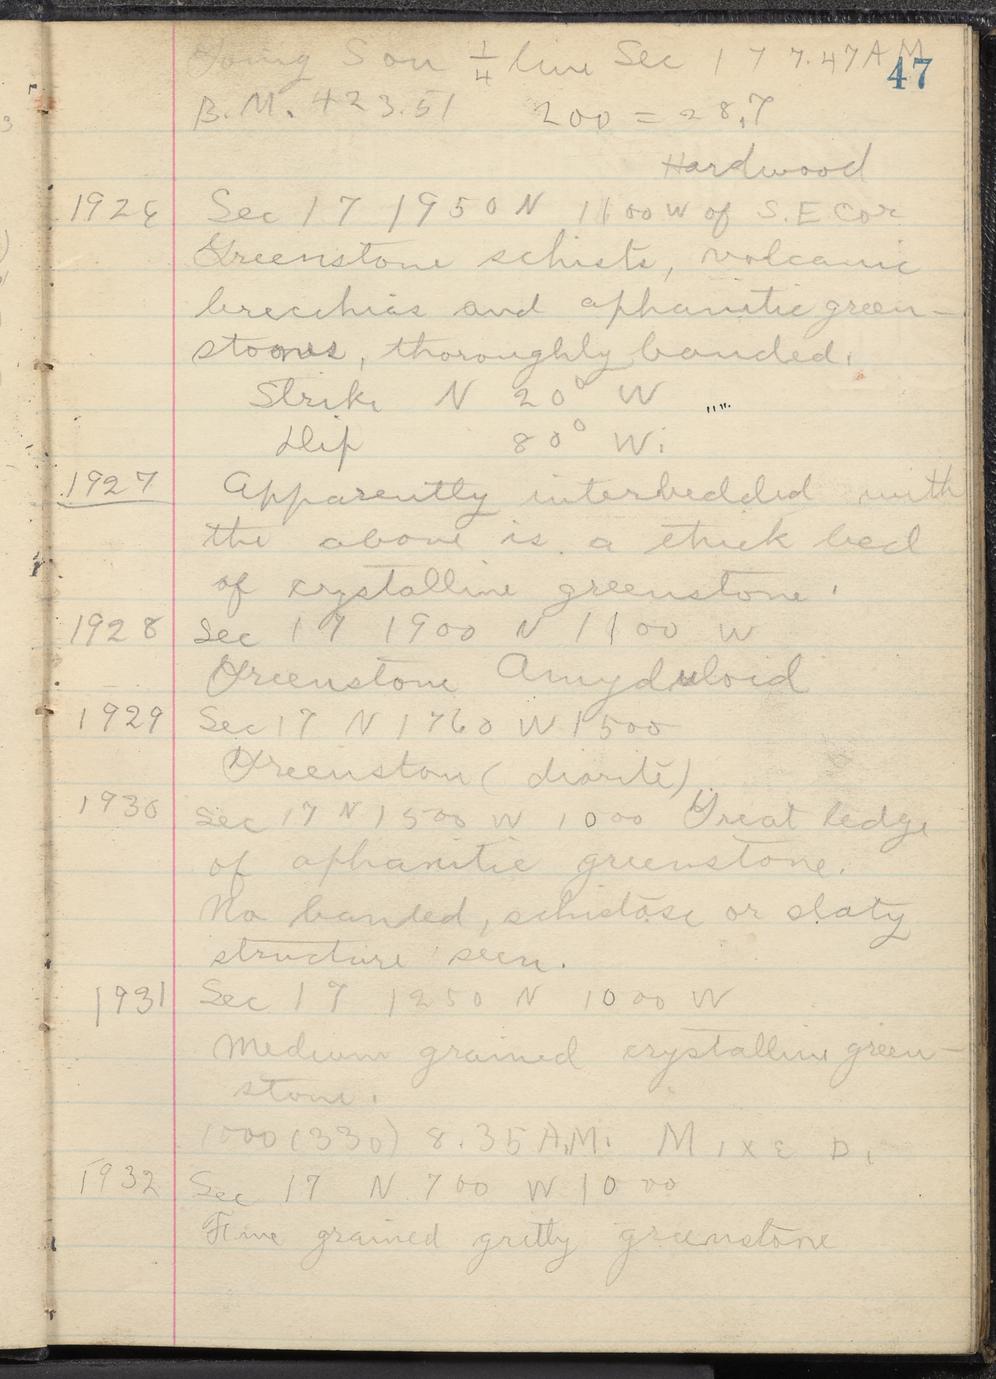 Going S on 1/4 line Sec 17 7.47 A M
47
B.M. 423.51 200 = 28.7
Hardwood
1926 Sec 17 1950 N 1100 W of S.E Cor
Greenstone schists, volcanic
brecchias and aphanitic green-
stones, thoroughly banded.
Strike N 20° W
Dip 80° W.
1927 Apparently interbedded with
the above is a thick bed
of crystalline greenstone.
1928 Sec 17 1900 N 1100 W
Greenstone Amyduloid
1929 Sec 17 N 1760 W 1500
Greenston (diorite)
1930 Sec 17 N 1500 W 1000 Great ledge
of aphanitic greenstone.
No banded, schistose or slaty
structure seen.
1931 Sec 17 1250 N 1000 W
Medium grained crystalline green-
stone.
1000 (330) 8.35 A.M. MIXED.
1932 Sec 17 N 700 W 1000
Fine grained gritty greenstone